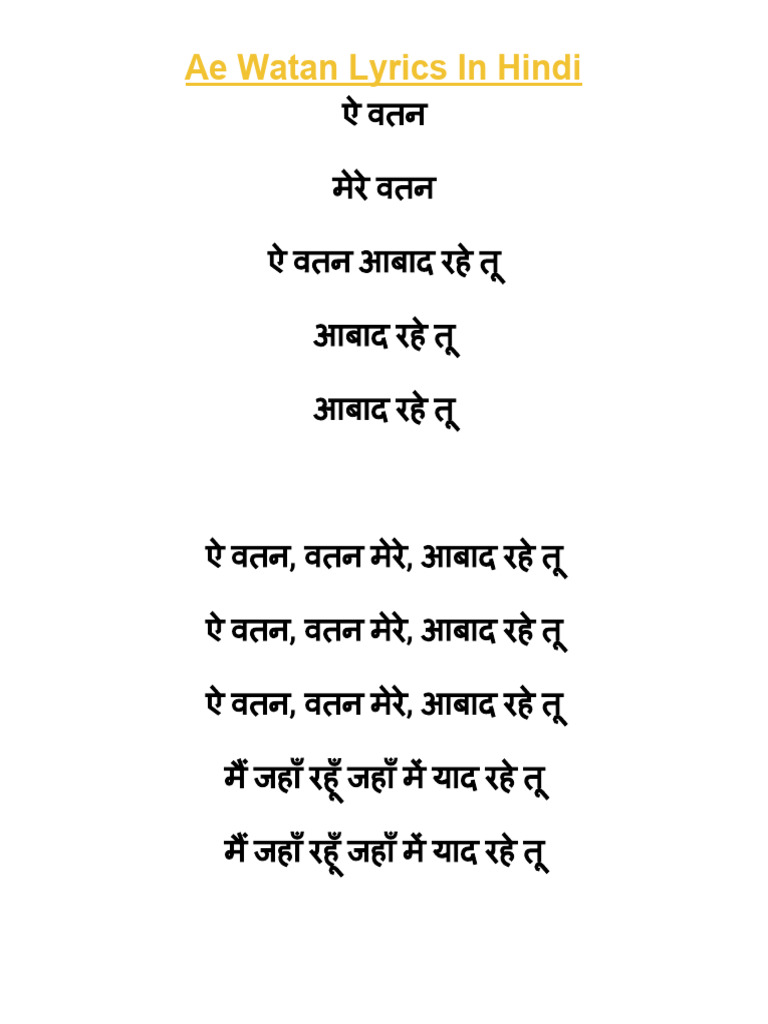 Ae Watan Lyrics In Hindi
ऐ वतन
मेरे वतन
ऐ वतन आबाद रहे तू
आबाद रहे तू
आबाद रहे तू
ऐ वतन, वतन मेरे, आबाद रहे तू
ऐ वतन, वतन मेरे, आबाद रहे तू
ऐ वतन, वतन मेरे, आबाद रहे तू
मैं जहाँ रहूँ जहाँ में याद रहे तू
मैं जहाँ रहूँ जहाँ में याद रहे तू